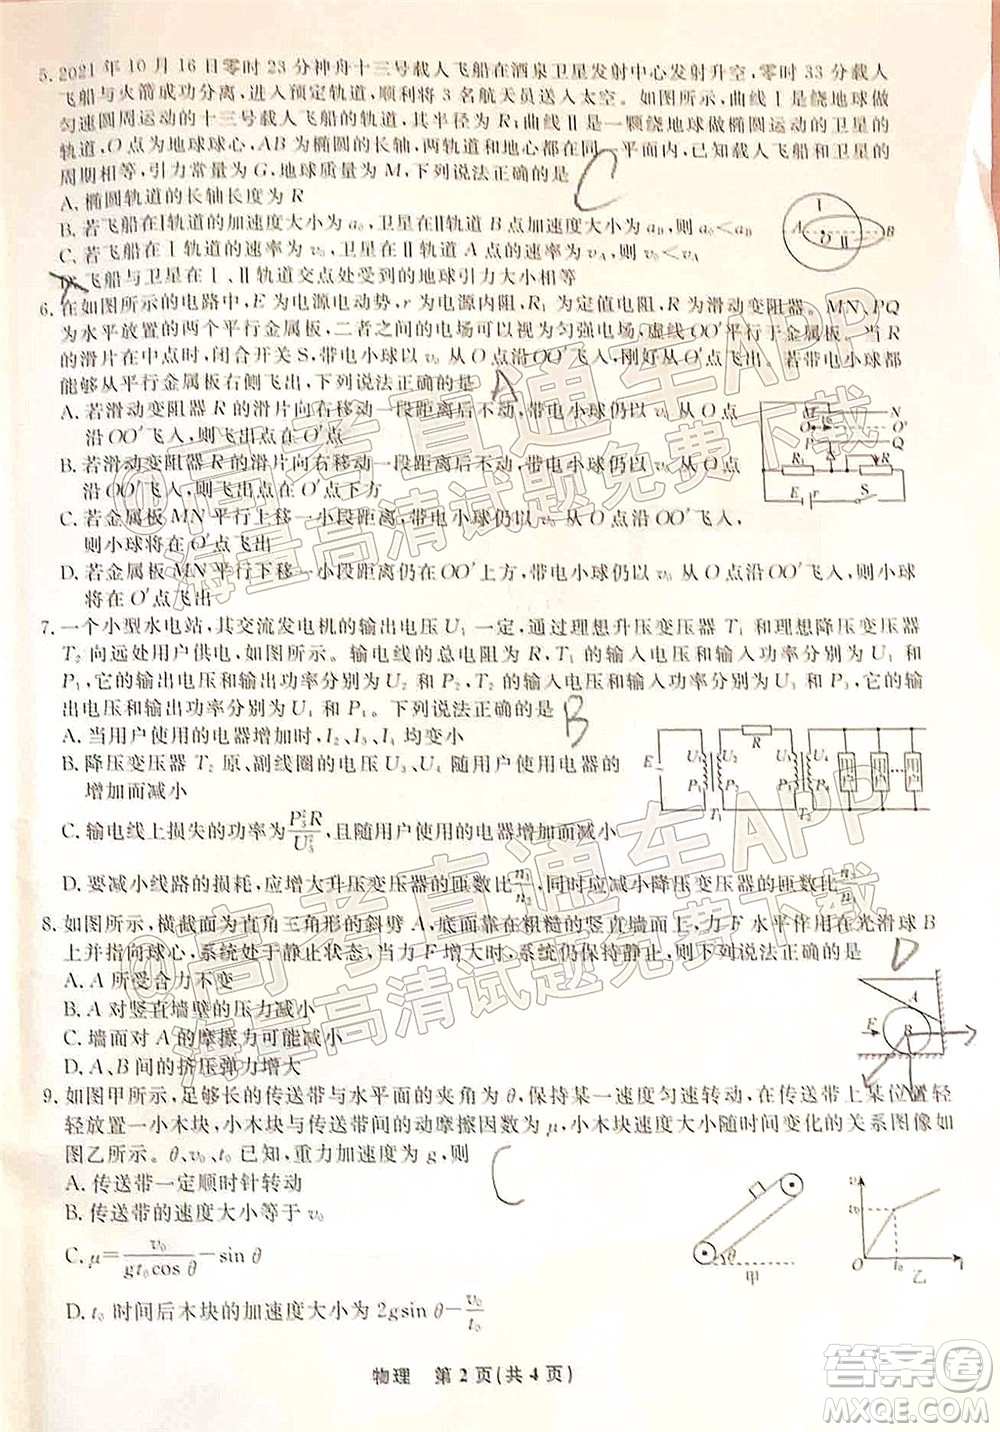 5. 2021 年 10 月 16 日零时 23 分神舟十三号载人飞船在酒泉卫星发射中心发射升空，零时 33 分载人
飞船与火箭成功分离，进入预定轨道，顺利将 3 名航天员送入太空。如图所示，曲线Ⅰ是绕地球做
匀速圆周运动的十三号载人飞船的轨道，其半径为 R；曲线Ⅱ是一颗绕地球做椭圆运动的卫星的
轨道，O点为地球球心，AB 为椭圆的长轴，两轨道和地心都在同一平面内，已知载人飞船和卫星的
周期相等，引力常量为 G，地球质量为 M，下列说法正确的是 C
A. 椭圆轨道的长轴长度为 R
B. 若飞船在Ⅰ轨道的加速度大小为 a₀，卫星在Ⅱ轨道 B 点加速度大小为 aB，则 a₀＜aB
C. 若飞船在Ⅰ轨道的速率为 v₀，卫星在Ⅱ轨道 A 点的速率为 vA，则 v₀＜vA
D. 飞船与卫星在Ⅰ、Ⅱ轨道交点处受到的地球引力大小相等
Ⅰ
A O Ⅱ B
6. 在如图所示的电路中，E 为电源电动势，r 为电源内阻，R₁ 为定值电阻，R 为滑动变阻器。MN、PQ
为水平放置的两个平行金属板，二者之间的电场可以视为匀强电场，虚线 OO′平行于金属板，当 R
的滑片在中点时，闭合开关 S，带电小球以 v₀ 从 O 点沿 OO′飞入，刚好从 O′点飞出。若带电小球都
能够从平行金属板右侧飞出，下列说法正确的是 A
A. 若滑动变阻器 R 的滑片向右移动一段距离后不动，带电小球仍以 v₀ 从 O 点
沿 OO′飞入，则小球在 O′点上方飞出
B. 若滑动变阻器 R 的滑片向右移动一段距离后不动，带电小球仍以 v₀ 从 O 点
沿 OO′飞入，则小球在 O′点下方飞出
C. 若金属板 MN 平行上移一小段距离，带电小球仍以 v₀ 从 O 点沿 OO′飞入，
则小球将在 O′点飞出
D. 若金属板 MN 平行下移一小段距离仍在 OO′上方，带电小球仍以 v₀ 从 O 点沿 OO′飞入，则小球
将在 O′点飞出
7. 一个小型水电站，其交流发电机的输出电压 U₁ 一定，通过理想升压变压器 T₁ 和理想降压变压器
T₂ 向远处用户供电，如图所示。输电线的总电阻为 R，T₁ 的输入电压和输入功率分别为 U₁ 和
P₁，它的输出电压和输出功率分别为 U₂ 和 P₂；T₂ 的输入电压和输入功率分别为 U₃ 和 P₃，它的输
出电压和输出功率分别为 U₄ 和 P₄。下列说法正确的是 B
A. 当用户使用的电器增加时，I₂、I₃、I₄ 均变小
B. 降压变压器 T₂ 原、副线圈的电压 U₃、U₄ 随用户使用电器的
增加而减小
C. 输电线上损失的功率为P₃²R/U₃²，且随用户使用的电器增加而减小
D. 要减小线路的损耗，应增大升压变压器的匝数比n₁/n₂，同时应减小降压变压器的匝数比
8. 如图所示，横截面为直角三角形的斜劈 A，底面靠在粗糙的竖直墙面上，力 F 水平作用在光滑球 B
上并指向球心，系统处于静止状态，当力 F 增大时，系统仍保持静止，下列说法正确的是 D
A. A 所受合力不变
B. A 对竖直墙壁的压力减小
C. 墙面对 A 的摩擦力可能减小
D. A、B 间的挤压弹力增大
F A B
9. 如图甲所示，足够长的传送带与水平面的夹角为 θ，保持某一速度匀速转动，在传送带上某位置轻
轻放置一小木块，小木块与传送带间的动摩擦因数为 μ，小木块速度大小随时间变化的关系图像如
图乙所示。θ、v₀、t₀ 已知，重力加速度为 g，则 C
A. 传送带一定顺时针转动
B. 传送带的速度大小等于 v₀
C. μ＝v₀/(gt₀cos θ)－sin θ
D. t₀ 时间后木块的加速度大小为 2gsin θ－v₀/t₀
θ 甲
v v₀ O t₀ t 乙
物理 第 2 页（共 4 页）
@高考直通车APP
海量高清试题免费下载
@高考直通车APP
海量高清试题免费下载
答案圈
MXQE.COM